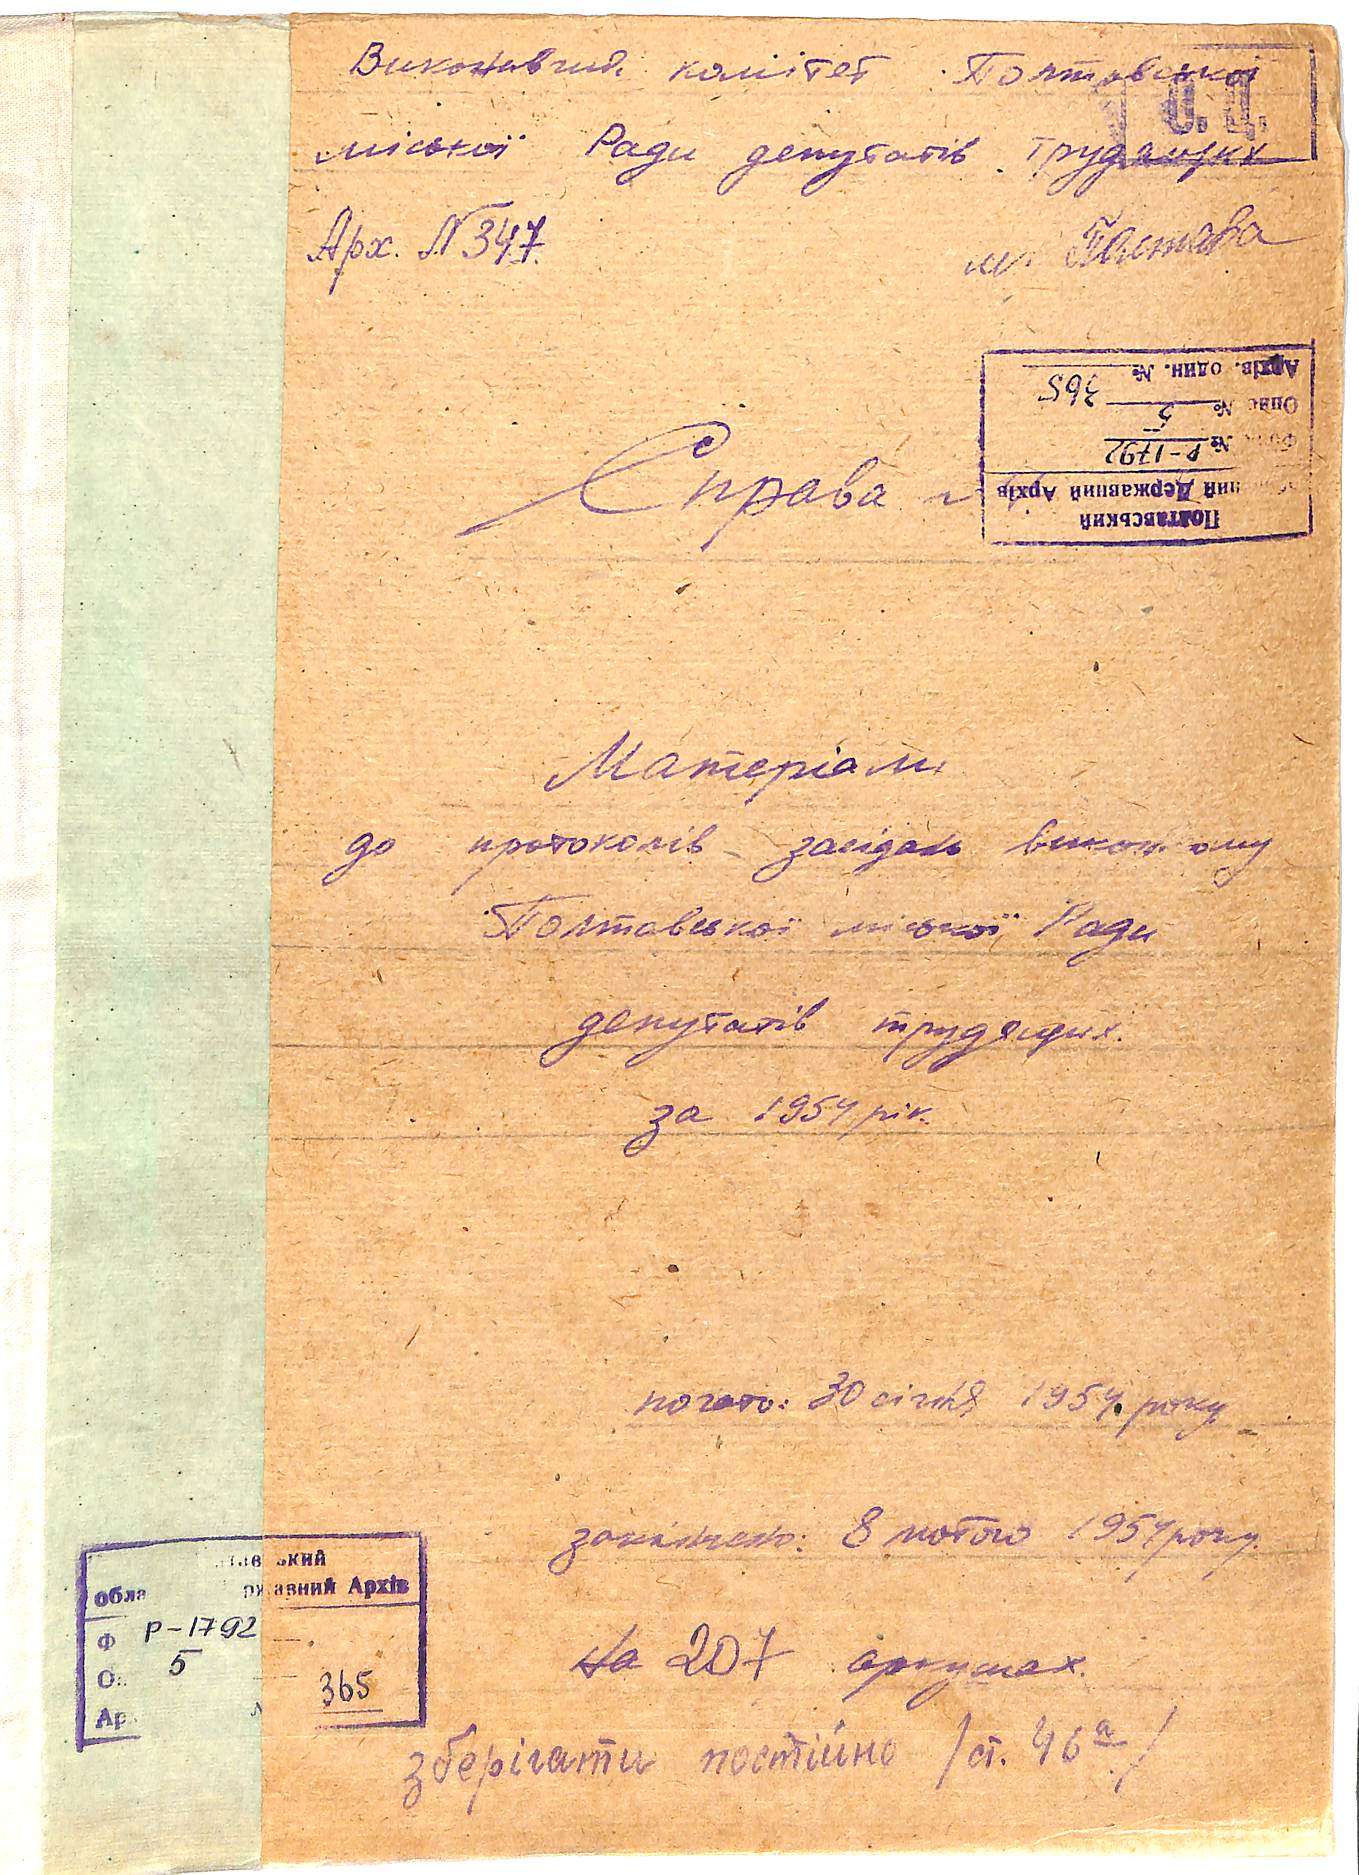 Виконавчий комітет Полтавської
О. Ц.
міської Ради депутатів трудящих
Арх. № 347
м. Полтава
Полтавський
Державний Архів
№ Р-1792
Опис № 5
Архів. один. № 365
Справа №
Матеріали
до протоколів засідань виконкому
Полтавської міської Ради
депутатів трудящих.
за 1954 рік.
почато: 30 січня 1954 року
закінчено: 8 лютого 1954 року.
На 207 аркушах.
зберігати постійно /ст. 46а/
тавський
обла ржавний Архів
Ф Р-1792
О 5
Ар 365